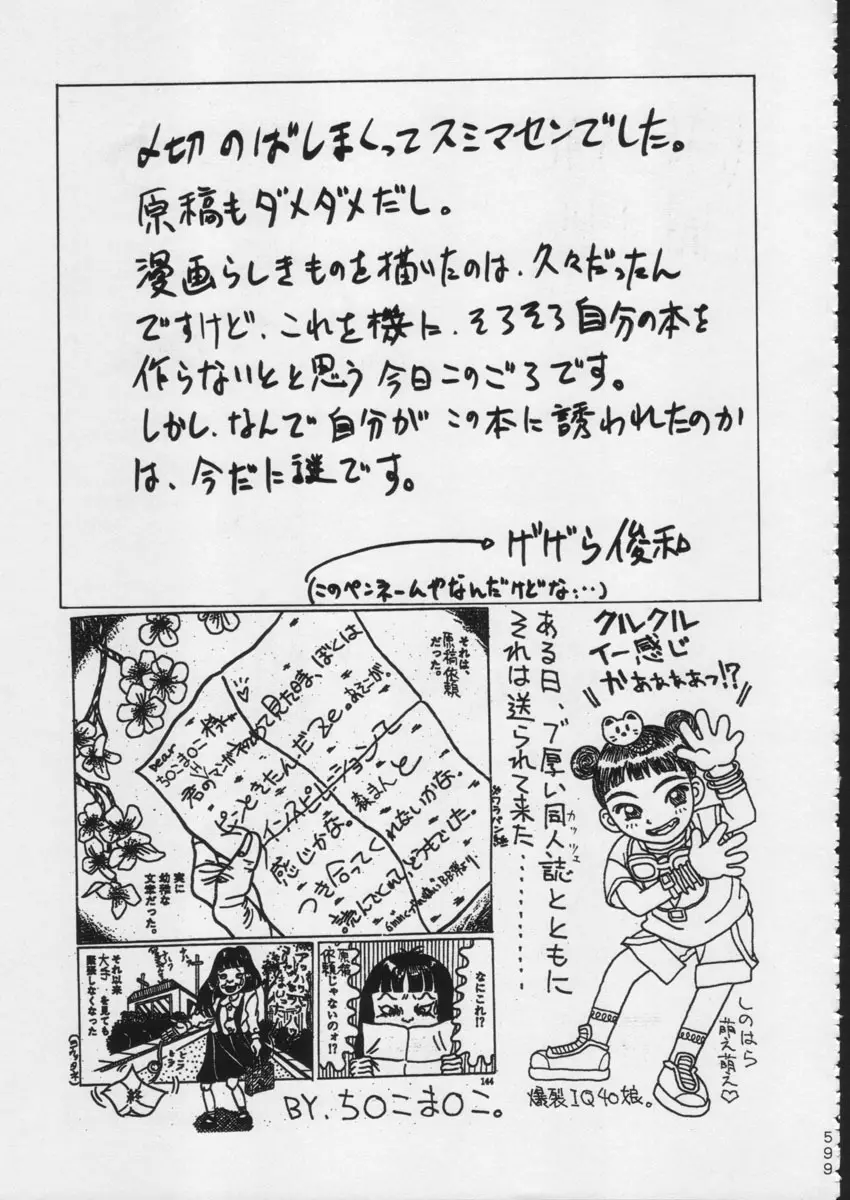 〆切のばしまくってスミマセンでした。
原稿もダメダメだし。
漫画らしきものを描いたのは、久々だったん
ですけど、これを機に、そろそろ自分の本を
作らないとと思う今日このごろです。
しかし、なんで自分がこの本に誘われたのか
は、今だに謎です。
げげら俊和
(このペンネームやなんだけどな…)
クルクル
イー感じ
かぁぁぁぁっ!?
ある日、ブ厚い同人誌とともに
カッツェ
それは送られて来た…………
それは、
原稿依頼
だった。
dear
ち〇こま〇こ様
君のマンガ
見た時、ぼくは
ピンときたんだZe。
インスピレーション
感じかな。
森まんと
つき合ってくれないかな。
読んでくれて、どうもでした。
※ワラバン紙
実に
幼稚な
文章だった。
なにこれ!?
原稿
依頼じゃないのォ!?
144
それ以来
大手を見ても
緊張しなくなった
終
BY.ち〇こま〇こ。
しのはら
萌え萌え♡
爆裂IQ40娘。
599